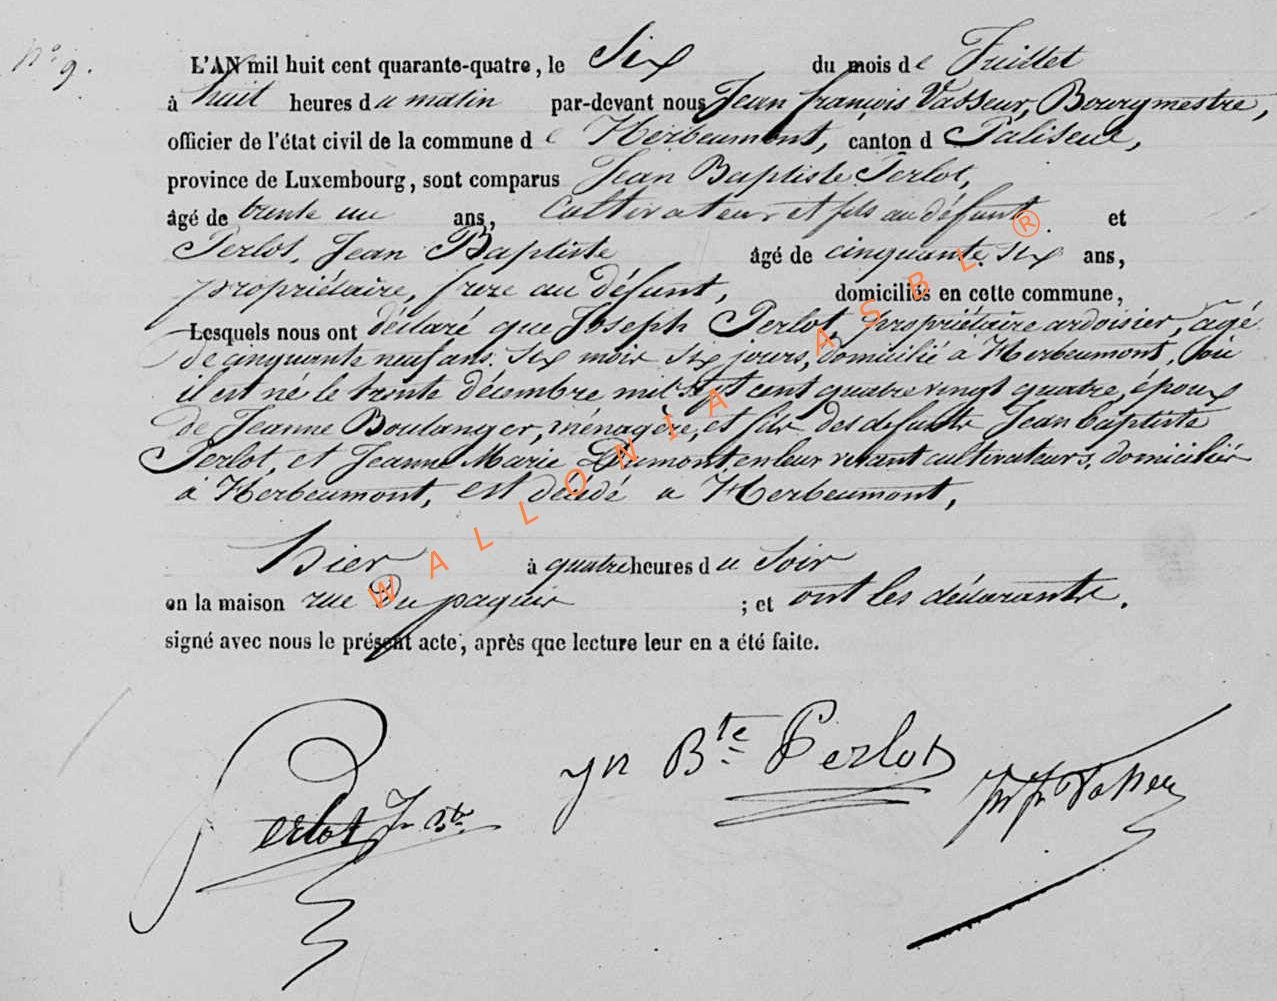 N° 9.
L'AN mil huit cent quarante-quatre, le Six du mois de Juillet
à huit heures du matin par-devant nous Jean françois Vasseur, Bourgmestre,
officier de l'état civil de la commune de Herbeumont, canton d Paliseul,
province de Luxembourg, sont comparus Jean Baptiste Perlot,
âgé de trente un ans, Cultivateur et fils au défunt et
Perlot, Jean Baptiste âgé de cinquante six ans,
propriétaire, frere au défunt, domiciliés en cette commune,
Lesquels nous ont déclaré que Joseph Perlot, propriétaire ardoisier, âgé
de cinquante neuf ans. Six mois six jours, domicilié à Herbeumont, où
il est né le trente décembre mil sept cent quatre vingt quatre, époux
de Jeanne Boulanger, ménagère, et fils des defunts Jean baptiste
Perlot, et Jeanne Marie Dumont en leur vivant cultivateurs, domiciliés
à Herbeumont, est décédé a Herbeumont,
hier à quatre heures du Soir
en la maison rue du paquis ; et ont les déclarants.
signé avec nous le présent acte, après que lecture leur en a été faite.
Perlot Jn Bte
Jn Bte Perlot
J. f. Vasseur
WALLONIA ASBL ®